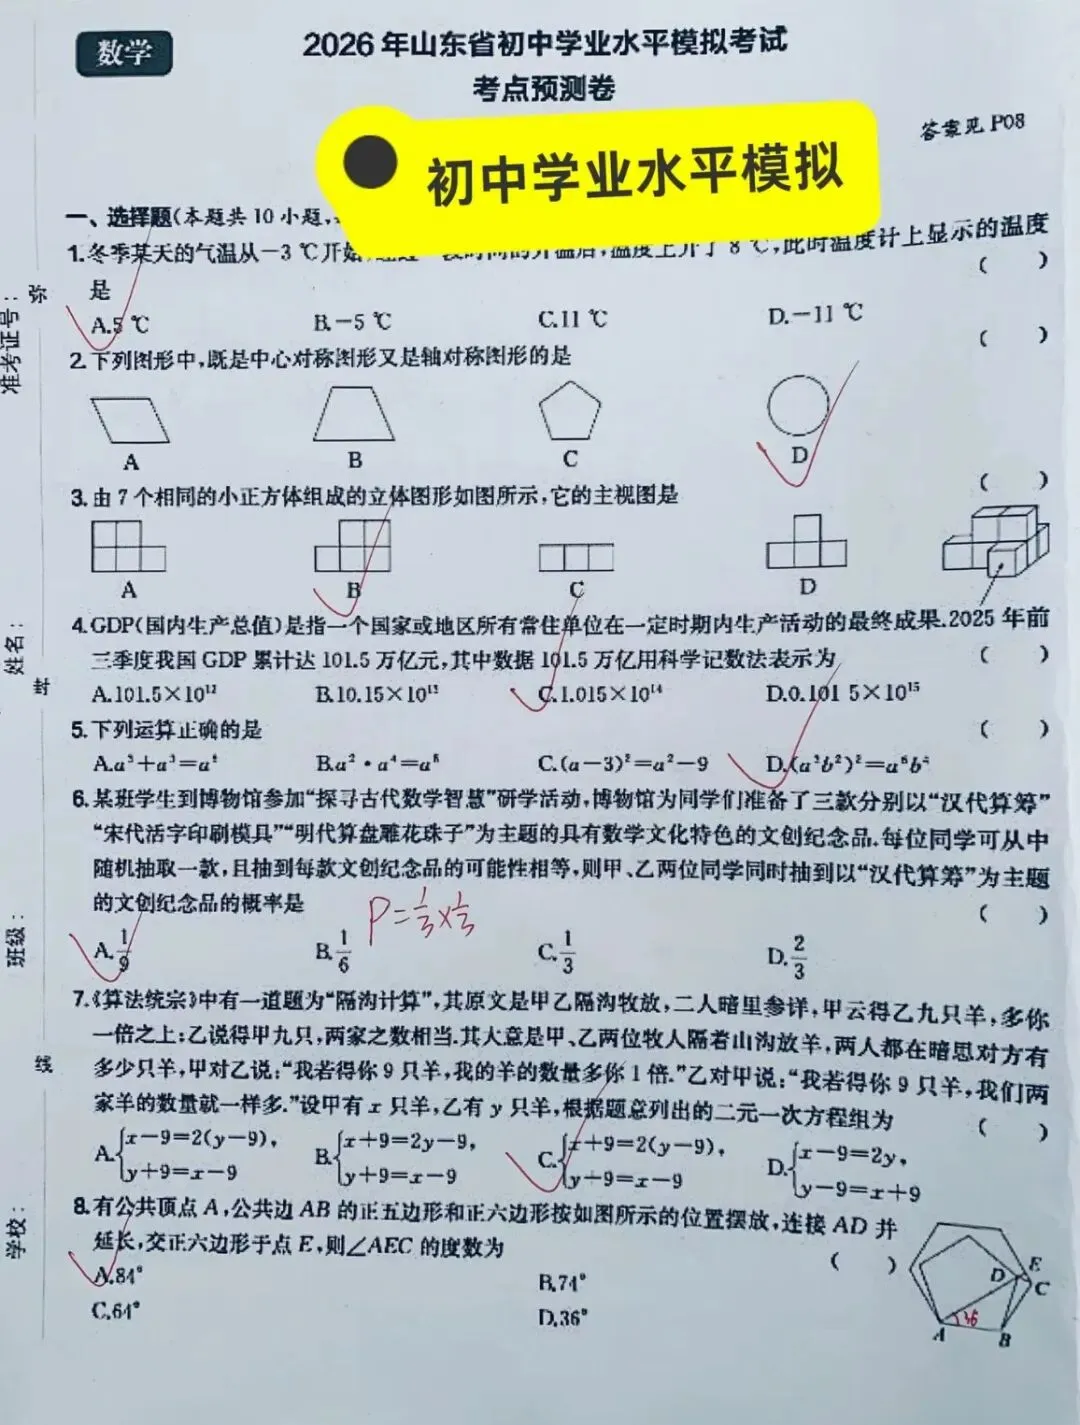 数学
2026年山东省初中学业水平模拟考试
考点预测卷
答案见P08
初中学业水平模拟
一、选择题(本题共10小题,
1.冬季某天的气温从-3 ℃开始,经过一段时间的升温后,温度上升了8 ℃,此时温度计上显示的温度
是 ( )
A.5 ℃ B.-5 ℃ C.11 ℃ D.-11 ℃
2.下列图形中,既是中心对称图形又是轴对称图形的是 ( )
A B C D
3.由7个相同的小正方体组成的立体图形如图所示,它的主视图是 ( )
A B C D
4.GDP(国内生产总值)是指一个国家或地区所有常住单位在一定时期内生产活动的最终成果.2025年前
三季度我国GDP累计达101.5万亿元,其中数据101.5万亿用科学记数法表示为 ( )
A.101.5×10¹² B.10.15×10¹³ C.1.015×10¹⁴ D.0.101 5×10¹⁵
5.下列运算正确的是 ( )
A.a³+a³=a⁶ B.a²·a⁴=a⁸ C.(a-3)²=a²-9 D.(a³b²)²=a⁶b⁴
6.某班学生到博物馆参加“探寻古代数学智慧”研学活动,博物馆为同学们准备了三款分别以“汉代算筹”
“宋代活字印刷模具”“明代算盘雕花珠子”为主题的具有数学文化特色的文创纪念品.每位同学可从中
随机抽取一款,且抽到每款文创纪念品的可能性相等,则甲、乙两位同学同时抽到以“汉代算筹”为主题
的文创纪念品的概率是 ( )
P=1/3×1/3
A.1/9 B.1/6 C.1/3 D.2/3
7.《算法统宗》中有一道题为“隔沟计算”,其原文是甲乙隔沟牧放,二人暗里参详,甲云得乙九只羊,多你
一倍之上;乙说得甲九只,两家之数相当.其大意是甲、乙两位牧人隔着山沟放羊,两人都在暗思对方有
多少只羊,甲对乙说:“我若得你9只羊,我的羊的数量多你1倍.”乙对甲说:“我若得你9只羊,我们两
家羊的数量就一样多.”设甲有x只羊,乙有y只羊,根据题意列出的二元一次方程组为 ( )
A.{x-9=2(y-9), B.{x+9=2y-9, C.{x+9=2(y-9), D.{x-9=2y,
y+9=x-9 y+9=x-9 y+9=x-9 y-9=x+9
8.有公共顶点A,公共边AB的正五边形和正六边形按如图所示的位置摆放,连接AD并
延长,交正六边形于点E,则∠AEC的度数为 ( )
A.84° B.74°
C.64° D.36°
E
D
C
36
A
B
准考证号:
弥
姓名:
封
班级:
线
学校: